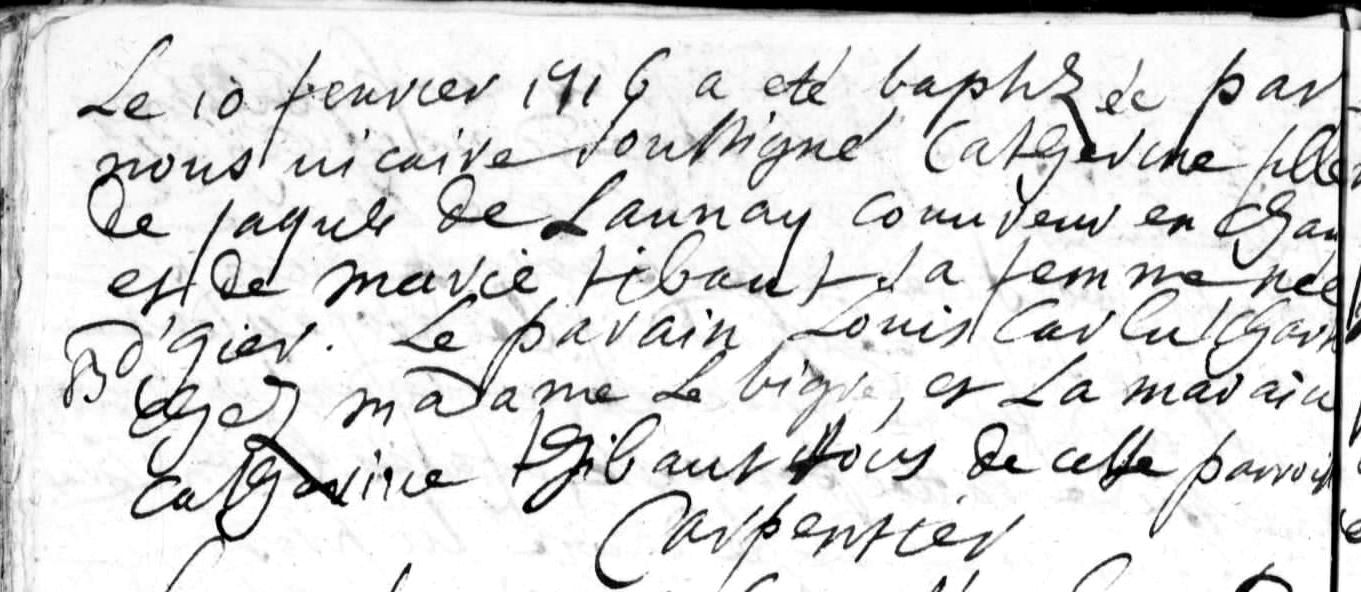 Le 10 fevrier 1716 a eté baptizéé par
nous vicaire soussigné Catherine fille
de jaques de Launay couvreur en chau
et de marie tibaut sa femme née
d'gier. Le parain Louis Carlu
chez madame Le bigre, et La maraine
Catherine thibaut tous de cette parroiss
Carpentier